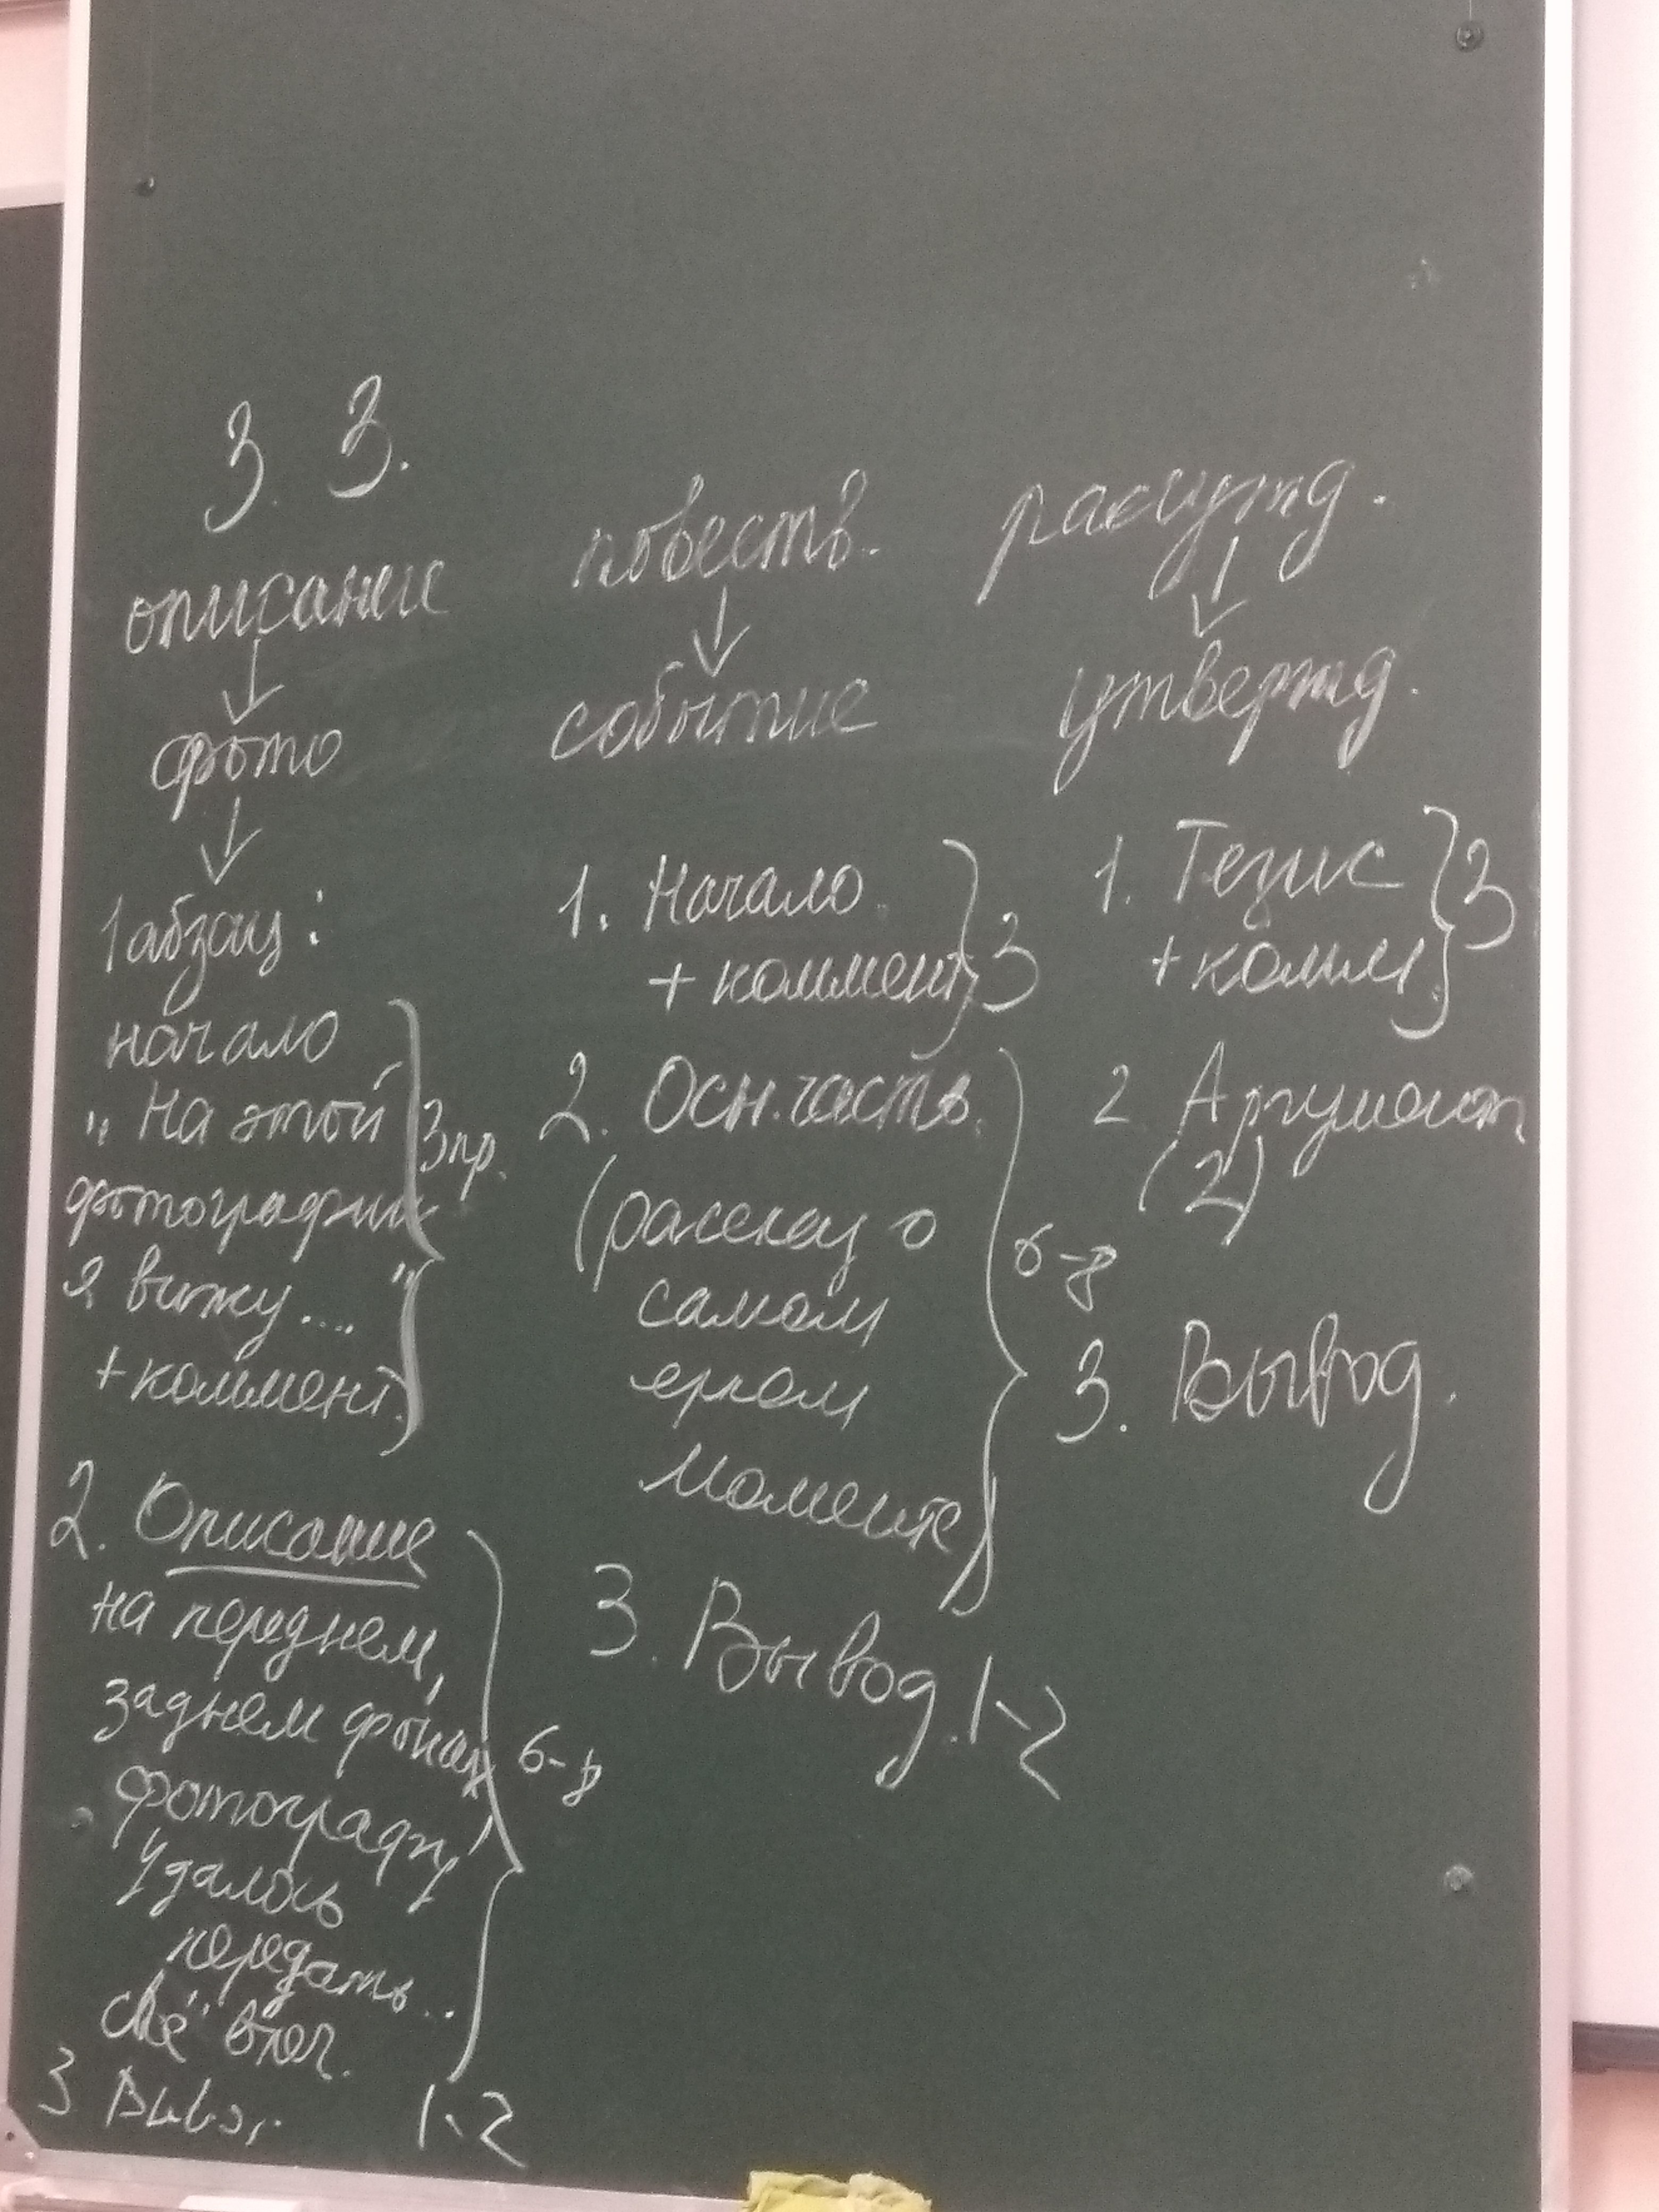 З. З.
описание
↓
фото
↓
1 абзац:
начало
„На этой
фотографии
я вижу...."
+коммент.
} 3 пр.
2. Описание
на переднем,
заднем фонах
фотографу
удалось
передать..
своё впеч.
} 6-8
3 Вывод. 1-2
повеств.
↓
событие
1. Начало
+ коммент.
} 3
2. Осн. часть.
(рассказ о
самом
ярком
моменте)
} 6-8
3. Вывод. 1-2
рассужд.
↓
утвержд.
1. Тезис
+комм.
} 3
2 Аргумент
(2)
3. Вывод.